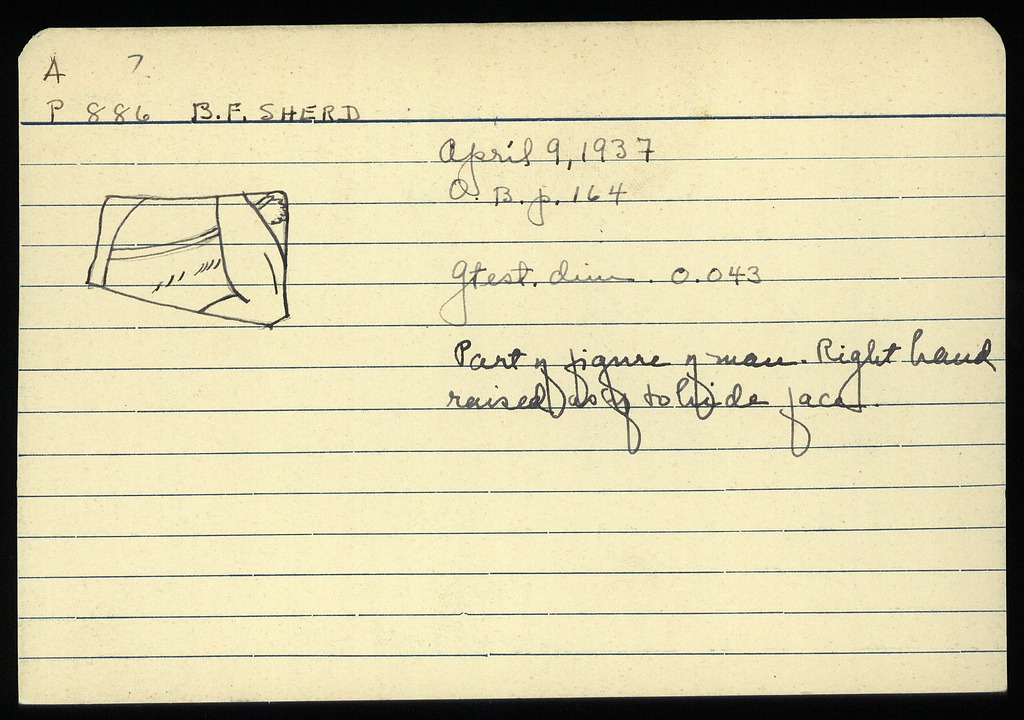 A 7
P 886 B.F. SHERD
April 9, 1937
O.B. p. 164
Gtest. dim. 0.043
Part of figure of man. Right hand
raised as if to hide face.